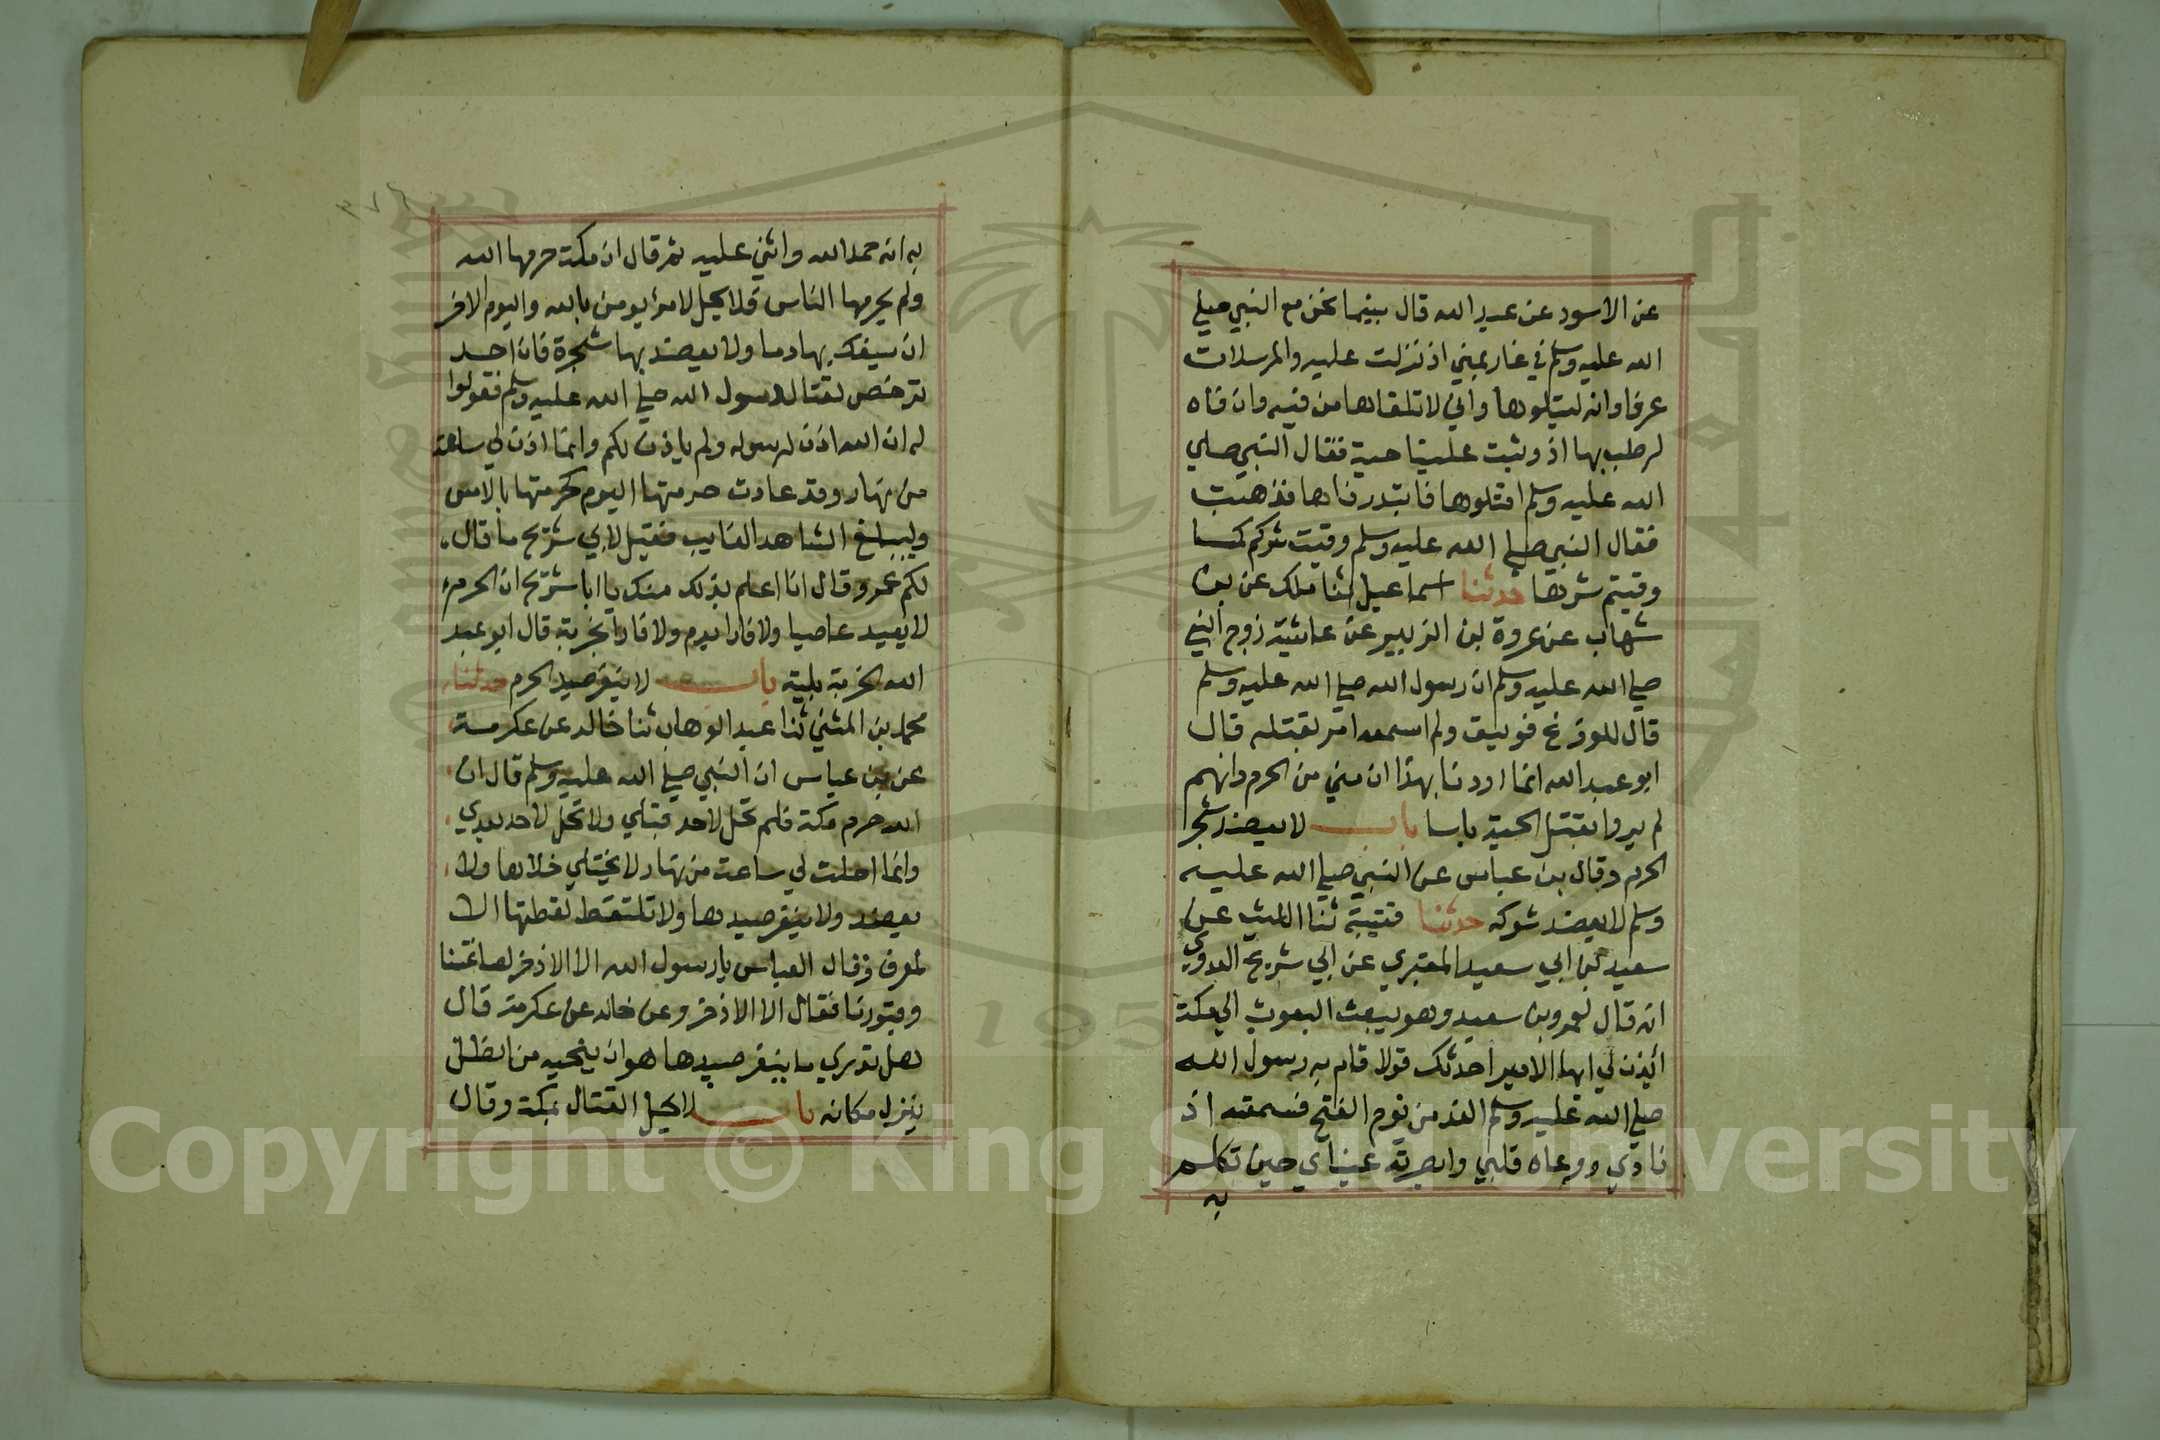 عن الاسود عن عبد الله قال بينما نحن مع النبي صلي
الله عليه وسلم في غار بمني اذ نزلت عليه والمرسلات
عرفا وانه ليتلوها واني لاتلقاها من فيه وان فاه
لرطب بها اذ وثبت علينا حية فقال النبي صلي
الله عليه وسلم اقتلوها فابتدرناها فذهبت
فقال النبي صلي الله عليه وسلم وقيت شركم كما
وقيتم شرها حدثنا اسماعيل ثنا ملك عن بن
شهاب عن عروة بن الزبير عن عائشة زوج النبي
صلي الله عليه وسلم ان رسول الله صلي الله عليه وسلم
قال للوزغ فويسق ولم اسمعه امر بقتله قال
ابو عبد الله انما اردنا بهذا ان مني من الحرم وانهم
لم يروا بقتل الحية باسا باب لا يعضد شجر
الحرم وقال بن عباس عن النبي صلي الله عليه
وسلم لا يعضد شوكه حدثنا قتيبة ثنا الليث عن
سعيد بن ابي سعيد المقبري عن ابي شريح العدوي
انه قال لعمرو بن سعيد وهو يبعث البعوث الي مكة
ائذن لي ايها الامير احدثك قولا قام به رسول الله
صلي الله عليه وسلم الغد من يوم الفتح فسمعته اذ
ناي ووعاه قلبي وابصرته عيناي حين تكلم
به
به انه حمد الله واثني عليه ثم قال ان مكة حرمها الله
ولم يحرمها الناس فلا يحل لامرئ يومن بالله واليوم الاخر
ان يسفك بها دما ولا يعضد بها شجرة فان احد
ترخص لقتال رسول الله صلي الله عليه وسلم فقولوا
له ان الله اذن لرسوله ولم ياذن لكم وانما اذن لي ساعة
من نهار وقد عادت حرمتها اليوم كحرمتها بالامس
وليبلغ الشاهد الغايب فقيل لابي شريح ما قال
لكم عمرو قال انا اعلم بذلك منك يا ابا شريح ان الحرم
لا يعيد عاصيا ولا فارا بدم ولا فارا بخربة قال ابو عبد
الله الخربة بلية باب لا ينفر صيد الحرم حدثنا
محمد بن المثني ثنا عبد الوهاب ثنا خالد عن عكرمة
عن بن عباس ان النبي صلي الله عليه وسلم قال ان
الله حرم مكة فلم تحل لاحد قبلي ولا تحل لاحد بعدي
وانما احلت لي ساعة من نهار لا يختلي خلاها ولا
يعضد ولا ينفر صيدها ولا تلتقط لقطتها الا
لمعرف وقال العباس يا رسول الله الا الاذخر لصاغتنا
وقبورنا فقال الا الاذخر وعن خالد عن عكرمة قال
هل تدري ما ينفر صيدها هو ان ينحيه من الظل
ينزل مكانه باب لا يحل القتال بمكة وقال
Copyright © King Saud University